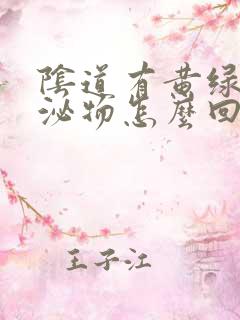 陰道有黄绿
泌物怎麼回
王子江